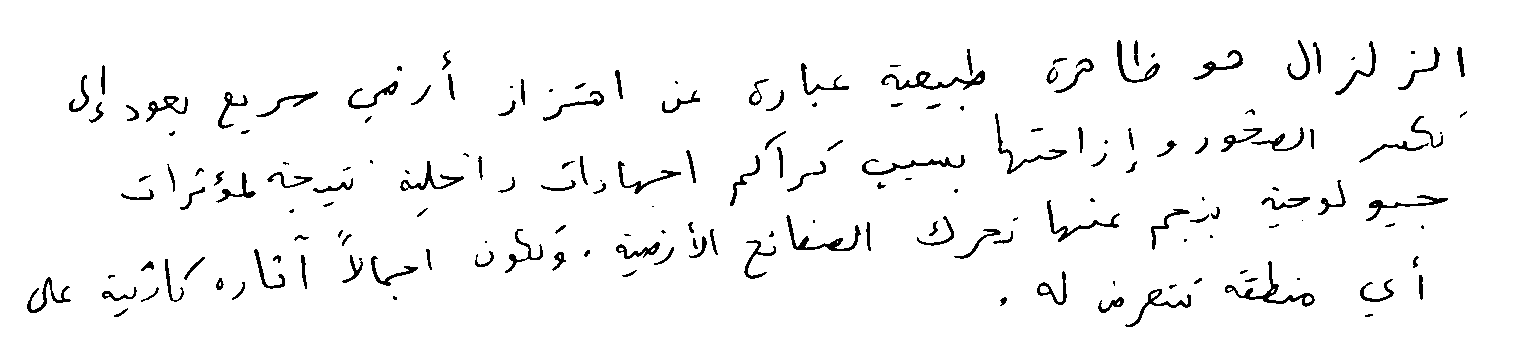 الزلزال هو ظاهرة طبيعية عبارة عن اهتزاز أرضي سريع يعود إلى
تكسر الصخور وإزاحتها بسبب تراكم اجهادات داخلية نتيجة لمؤثرات
جيولوجية ينجم عنها تحرك الصفائح الأرضية. وتكون اجمالاً آثاره كارثية على
أي منطقة تتعرض له.